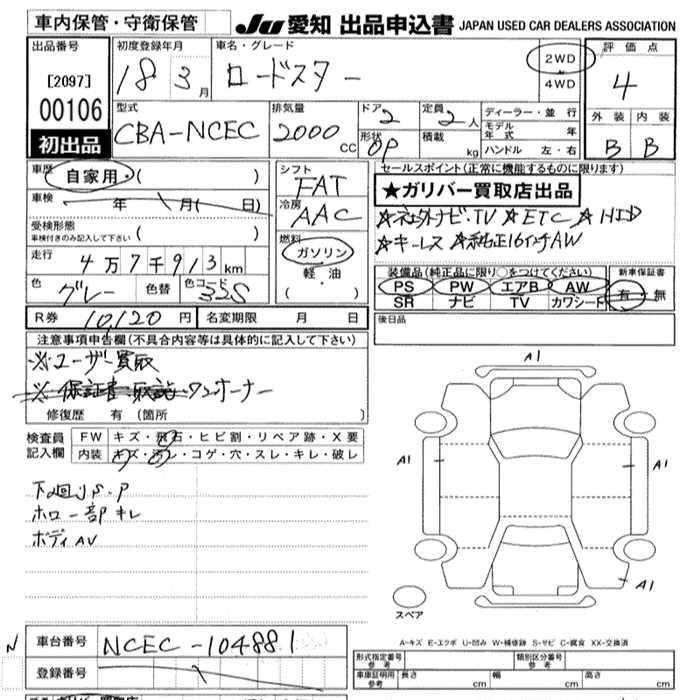 車内保管・守衛保管
JU 愛知 出品申込書 JAPAN USED CAR DEALERS ASSOCIATION
出品番号 初度登録年月 車名・グレード 評価点
[2097] 18 3月 ロードスター 2WD 4WD 4
00106 型式 排気量 ドア 2 定員 2人 ディーラー・並行 外装 内装
CBA-NCEC 2000cc 形状 OP 積載 kg モデル年式 年 B B
初出品 ハンドル 左・右
車歴 自家用・( ) シフト FAT セールスポイント(正常に機能するものに限ります)
車検 年 月( 日) 冷房 AAC ★ガリバー買取店出品
受検形態 ( ) ☆社外ナビ・TV ☆ETC ☆HID
車検付きのみ記入して下さい 燃料 ☆キーレス ☆純正16インチAW
走行 4万7千913km ガソリン・軽油 ( ・ )
装備品(純正品に限り○をつけてください) 新車保証書
色 グレー 色替 色コード 32S PS PW エアB AW 有・無
SR ナビ TV カワシート
R券 10,120円 名変期限 月 日 後日品
注意事項申告欄(不具合内容等は具体的に記入して下さい)
※ユーザー買取
※保証書・取説 ワンオーナー
修復歴 有(箇所 )
検査員記入欄 FW キズ・飛石・ヒビ割・リペア跡・X要
内装 キズ・汚レ・コゲ・穴・スレ・キレ・破レ
下廻りS.P
ホロ一部キレ
ボディAV
A1
A1
A1
A1
スペア
A-キズ E-エクボ U-凹み W-補修跡 S-サビ C-腐食 XX-交換済
N 車台番号 NCEC-104881
登録番号
形式指定番号 参考 類別区分番号 参考
車庫証明用 参考 長さ cm 幅 cm 高さ cm